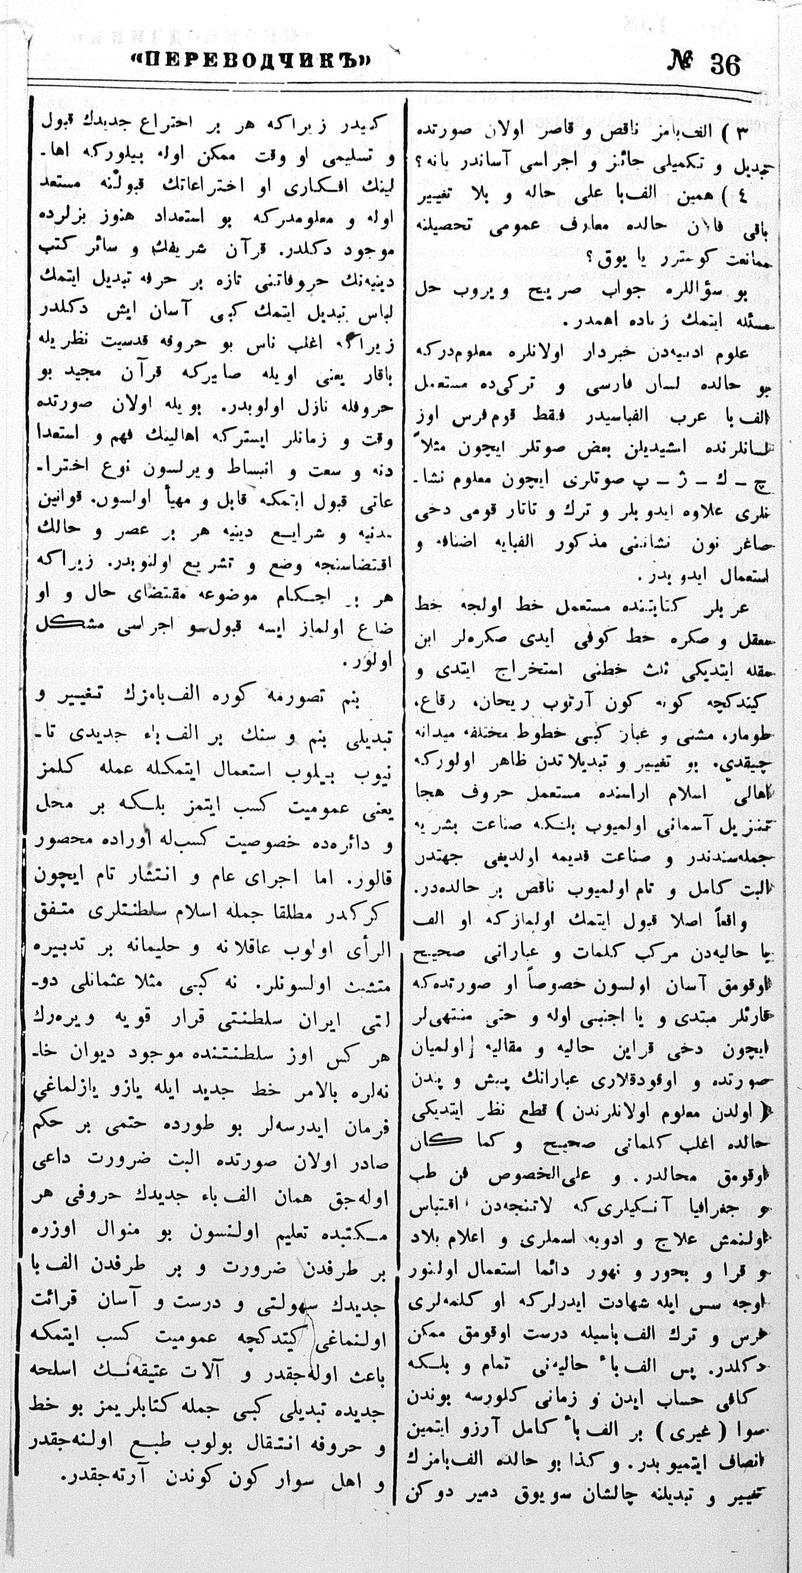 «ПЕРЕВОДЧИКЪ» № 36
٣ ) الف‌بامز ناقص و قاصر اولان صورتده
تبدیل و تکمیلی جائز و اجراسی آساندر یانه؟
٤ ) همین الف‌با علی حاله و بلا تغییر
باقی قالان حالده معارف عمومی تحصیلنه
ممانعت کوسترر یا یوق؟
بو سؤاللره جواب صریح ویروب حل
مسئله ایتمك زیاده اهمدر.
علوم ادبیه‌دن خبردار اولانلره معلوم‌درکه
بو حالده لسان فارسی و ترکی‌ده مستعمل
الف‌با عرب الفباسیدر فقط قوم‌فرس اوز
لسانلرنده اشیدیلن بعض صوتلر ایچون مثلاً
چ ـ ك ـ ژ ـ پ صوتلری ایچون معلوم نشا‌ـ
نلری علاوه ایدوبلر و ترك و تاتار قومی دخی
صاغر نون نشاننی مذکور الفبایه اضافه و
استعمال ایدوبدر.
عربلر کتابتنده مستعمل خط اولجه خط
معقل و صکره خط کوفی ایدی صکره‌لر ابن
مقله ایتدیکی ثلث خطنی استخراج ایتدی و
کیتدکچه کونه کون آرتوب ریحان، رقاع،
طومار، مشنی و غبار کبی خطوط مختلفه میدانه
چیقدی. بو تغییر و تبدیلاتدن ظاهر اولورکه
اهالی اسلام اراسنده مستعمل حروف هجا
تنزیل آسمانی اولمیوب بلنکه صناعت بشریه
جمله‌سندندر و صناعت قدیمه اولدیغی جهتدر
البت کامل و تام اولمیوب ناقص بر حالده‌در.
واقعاً اصلا قبول ایتمك اولمازکه او الف
یا حالیه‌دن مرکب کلمات و عباراتی صحیح
اوقومق آسان اولسون خصوصاً او صورتده‌که
قارئلر مبتدی و یا اجنبی اوله و حتی منتهی‌لر
ایچون دخی قراین حالیه و مقالیه اولمیان
صورتده و اوقودقلاری عباراتك پیش و پندن
( اولدن معلوم اولانلرندن ) قطع نظر ایتدیکی
حالده اغلب کلماتی صحیح و کما کان
اوقومق محالدر. و علی‌الخصوص فن طب
و جغرافیا آنکیلری‌که لاتنجه‌دن اقتباس
اولنمش علاج و ادویه اسملری و اعلام بلاد
و قرا و بحور و نهور دائما استعمال اولنور
اوجه سس ایله شهادت ایدرلرکه او کلمه‌لری
فرس و ترك الف‌باسیله درست اوقومق ممکن
دکلدر. پس الف‌باءٔ حالیه‌نی تمام و بلکه
کافی حساب ایدن و زمانی کلورسه بوندن
سوا ( غیری ) بر الف‌باءٔ کامل آرزو ایتمین
انصاف ایتمیوبدر. و کذا بو حالده الف‌بامزك
تغییر و تبدیلنه چالشان سویوق دمیر دوکن
کیدر زیراکه هر بر اختراع جدیدك قبول
و تسلیمی او وقت ممکن اوله بیلورکه اها‌ـ
لینك افکاری او اختراعاتك قبولنه مستعد
اوله و معلومدرکه بو استعداد هنوز بزلرده
موجود دکلدر. قرآن شریفك و سائر کتب
دینیه‌نك حروفاتنی تازه بر حرفه تبدیل ایتمك
لباس تبدیل ایتمك کبی آسان ایش دکلدر
زیراکه اغلب ناس بو حروفه قدسیت نظریله
باقار یعنی اویله صایرکه قرآن مجید بو
حروفله نازل اولوبدر. بویله اولان صورتده
وقت و زمانلر ایسترکه اهالینك فهم و استعدا
دنه و سعت و انبساط ویرلسون نوع اخترا‌ـ
عاتی قبول ایتمکه قابل و مهیأ اولسون. قوانین
مدنیه و شرایع دینیه هر بر عصر و حالك
اقتضاسنجه وضع و تشریع اولنوبدر. زیراکه
هر بر احکام موضوعه مقتضای حال و او
ضاع اولماز ایسه قبول‌و اجراسی مشکل
اولور.
بنم تصورمه کوره الف‌بامزك تغییر و
تبدیلی بنم و سنك بر الف‌باء جدیدی تا‌ـ
نیوب بیلوب استعمال ایتمکله عمله کلمز
یعنی عمومیت کسب ایتمز بلکه بر محل
و دائره‌ده خصوصیت کسب‌له اوراده محصور
قالور. اما اجرای عام و انتشار تام ایچون
کرکدر مطلقا جمله اسلام سلطنتلری متفق
الرأی اولوب عاقلانه و حلیمانه بر تدبیره
متشبث اولسونلر. نه کبی مثلا عثمانلی دو‌ـ
لتی ایران سلطنتی قرار قویه ویره‌رك
هر کس اوز سلطنتنده موجود دیوان خا‌ـ
نه‌لره بالامر خط جدید ایله یازو یازلماغی
فرمان ایدرسه‌لر بو طورده حتمی بر حکم
صادر اولان صورتده البت ضرورت داعی
اوله‌جق همان الف‌باء جدیدك حروفی هر
مکتبده تعلیم اولنسون بو منوال اوزره
بر طرفدن ضرورت و بر طرفدن الف‌با
جدیدك سهولتی و درست و آسان قرائت
اولنماغی کیتدکچه عمومیت کسب ایتمکه
باعث اوله‌جقدر و آلات عتیقه‌نك اسلحه
جدیده تبدیلی کبی جمله کتابلریمز بو خط
و حروفه انتقال بولوب طبع اولنه‌جقدر
و اهل سوار کون کوندن آرته‌جقدر.